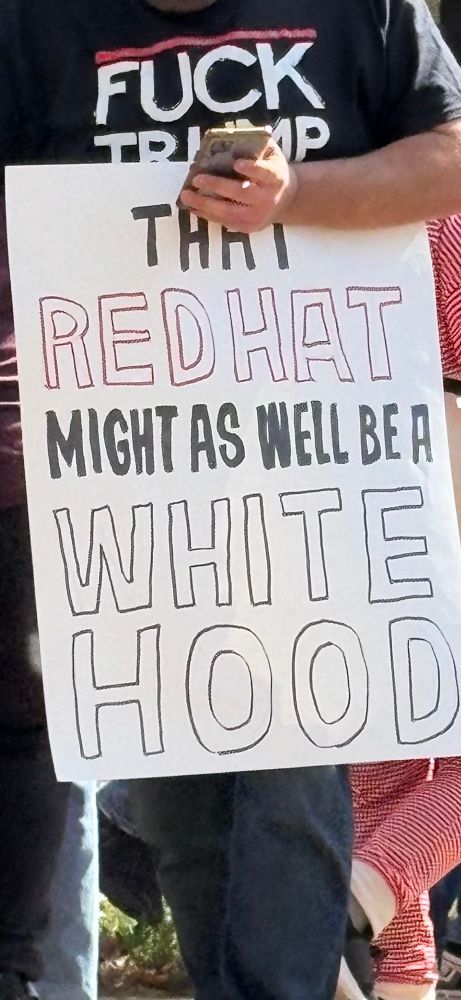 FUCK
TRUMP
THAT
RED HAT
MIGHT AS WELL BE A
WHITE
HOOD